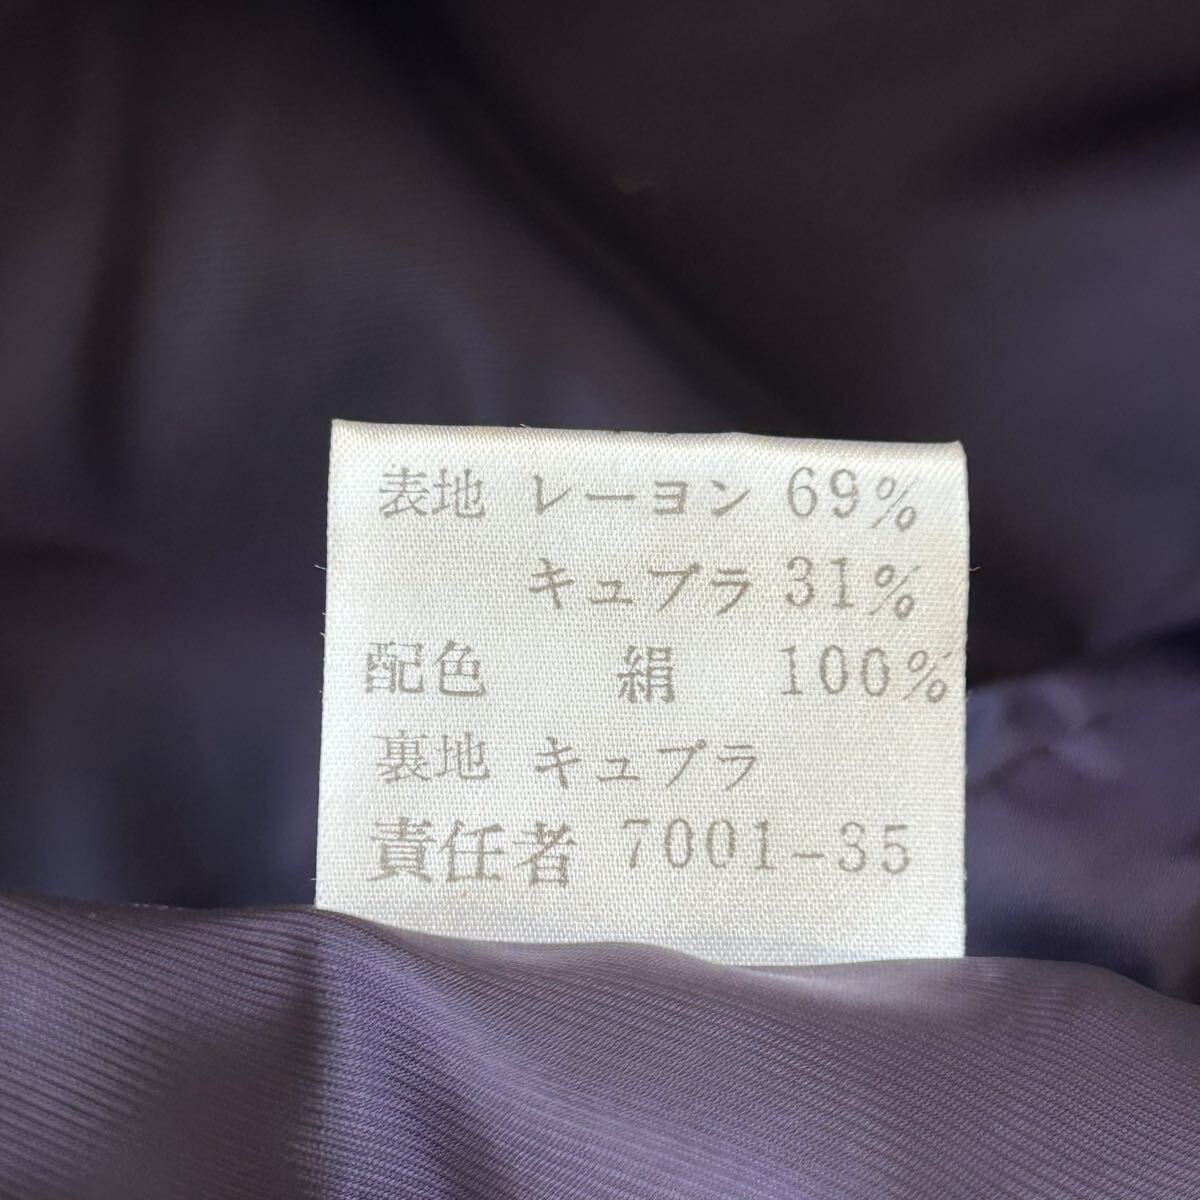 表地 レーヨン 69%
キュプラ 31%
配色 絹 100%
裏地 キュプラ
責任者 7001-35